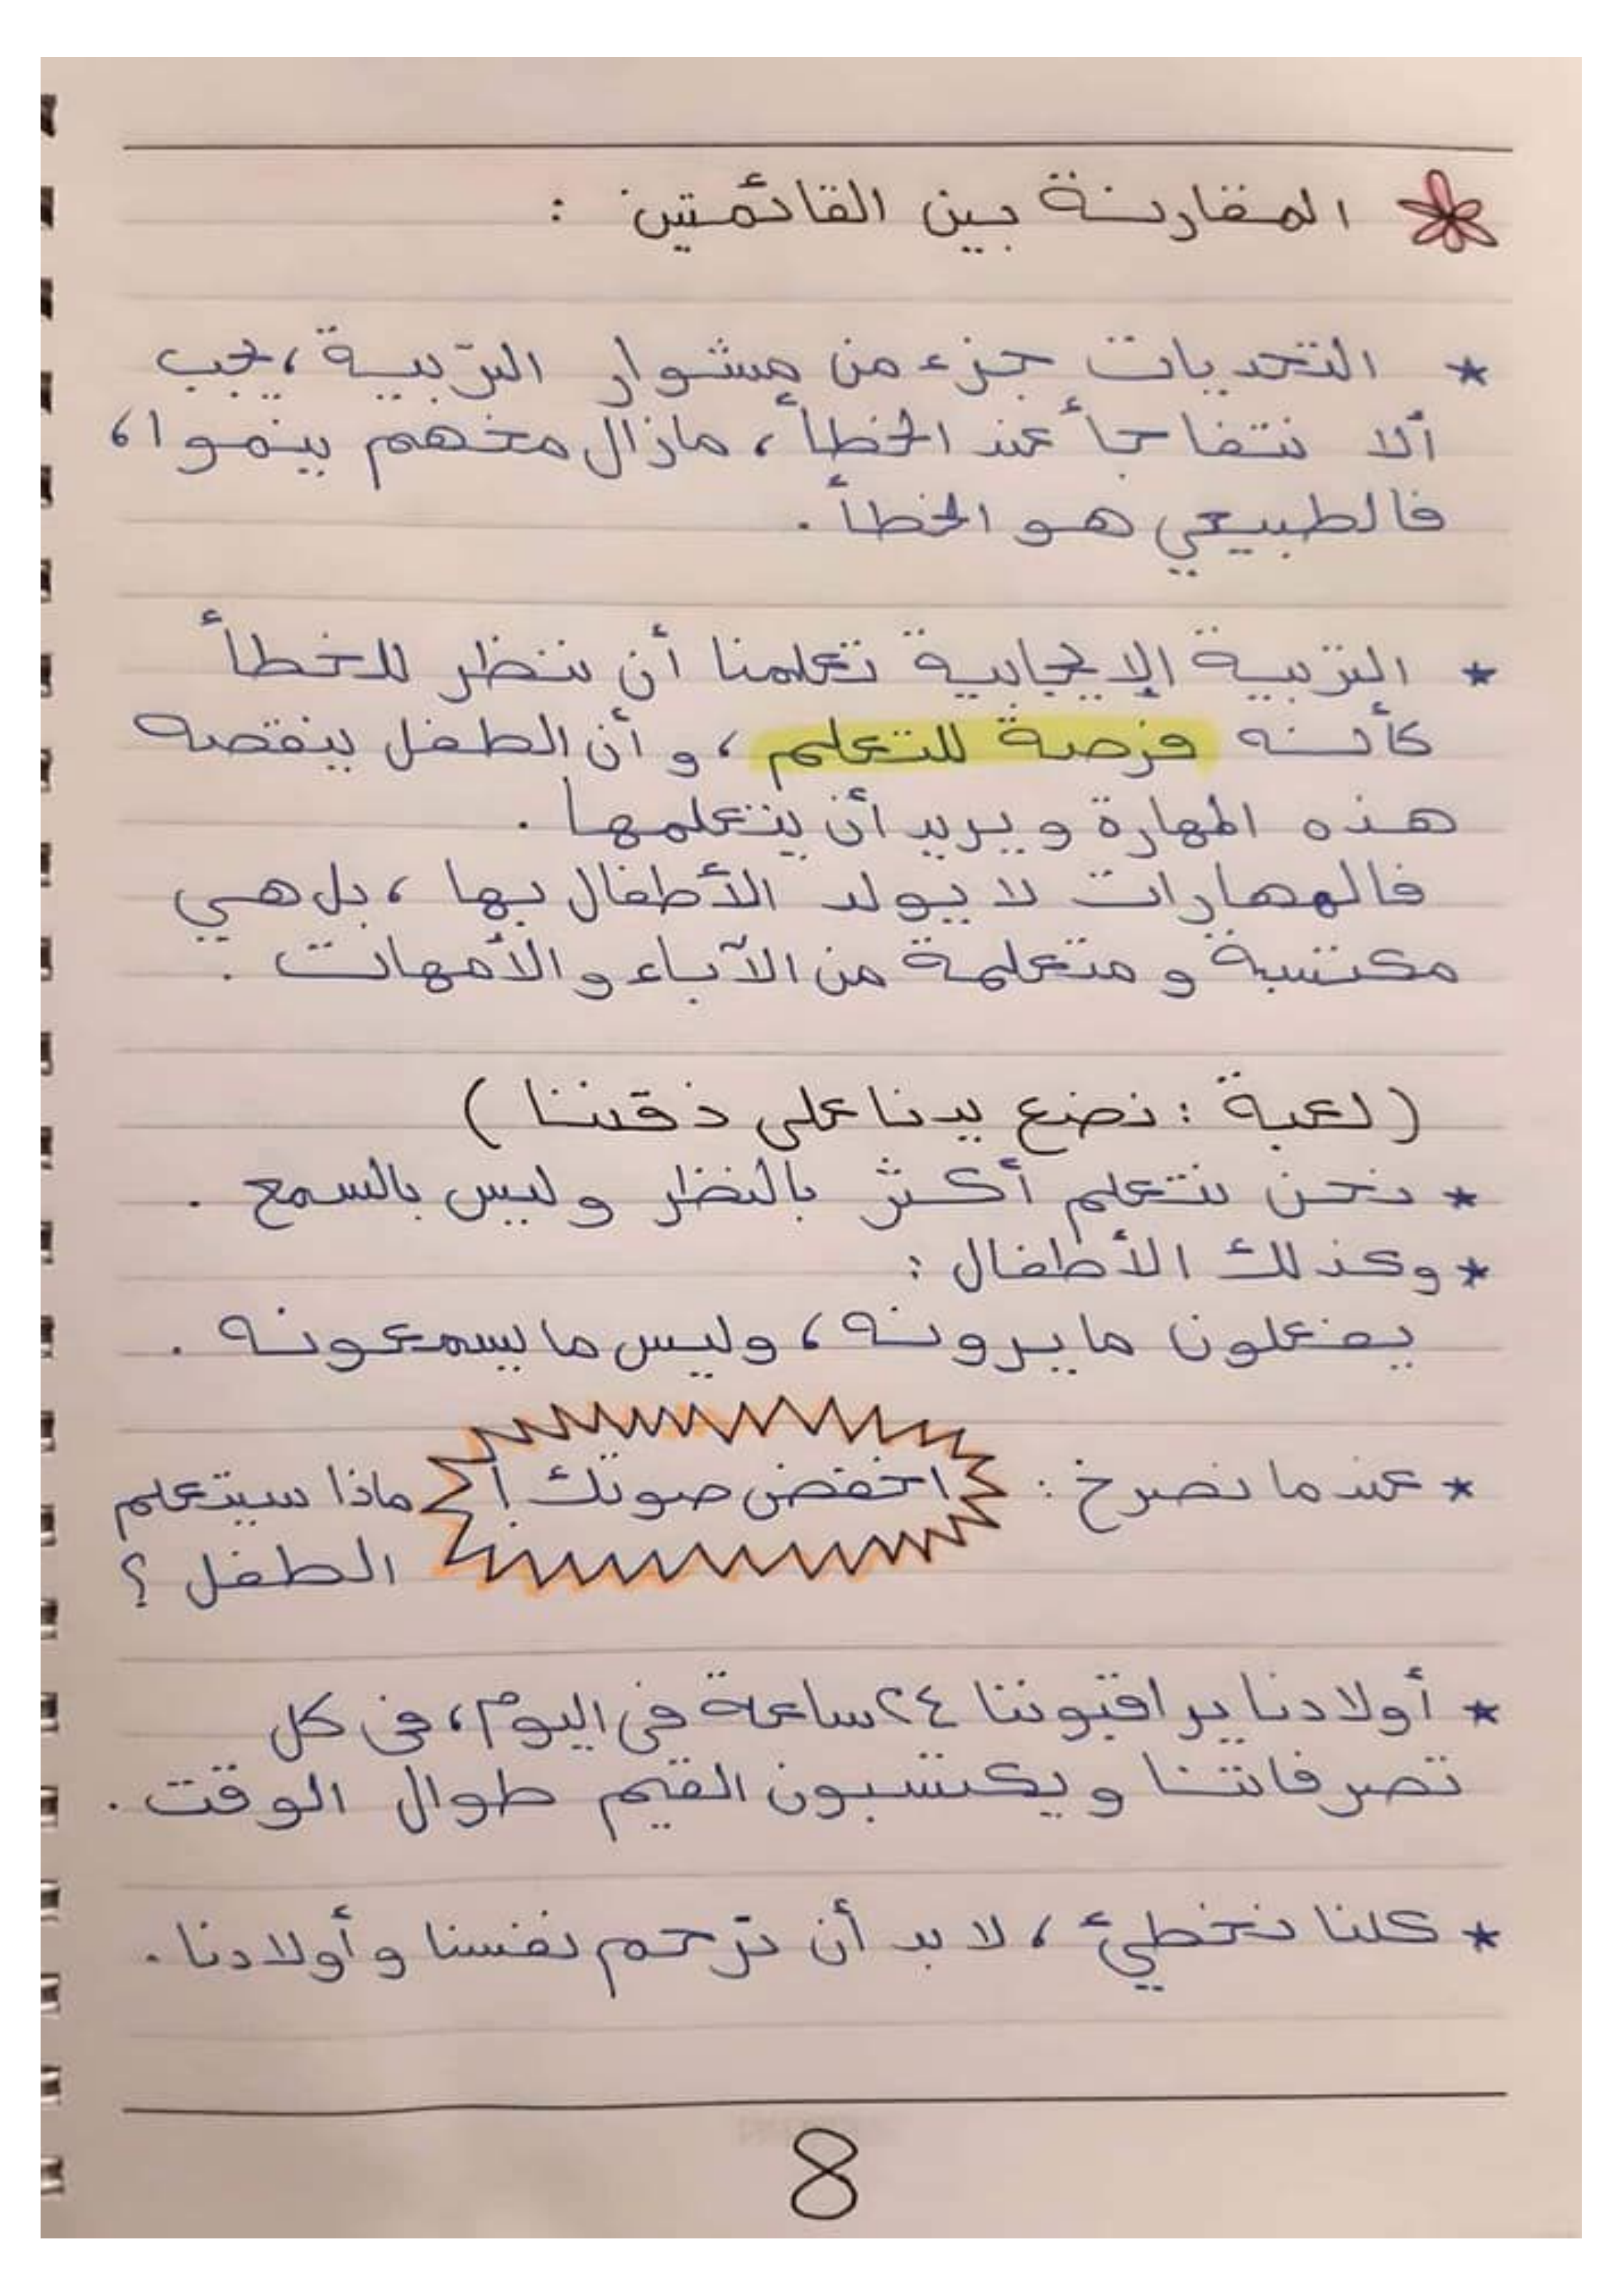 المقارنة بين القائمتين :
* التحديات جزء من مشوار التربية، يجب
ألا نتفاجأ عند الخطأ، مازال مخهم ينموا،
فالطبيعي هو الخطأ .
* التربية الإيجابية تعلمنا أن ننظر للخطأ
كأنه فرصة للتعلم، وأن الطفل ينقصه
هذه المهارة ويريد أن يتعلمها .
فالمهارات لا يولد الأطفال بها، بل هي
مكتسبة ومتعلمة من الآباء والأمهات .
(لعبة : نضع يدنا على ذقننا)
* نحن نتعلم أكثر بالنظر وليس بالسمع .
* وكذلك الأطفال :
يفعلون ما يرونه، وليس ما يسمعونه .
* عندما نصرخ : اخفض صوتك! ماذا سيتعلم
الطفل ؟
* أولادنا يراقبوننا ٢٤ ساعة في اليوم، في كل
تصرفاتنا ويكتسبون القيم طوال الوقت .
* كلنا نخطئ، لا بد أن نرحم نفسنا وأولادنا .
8